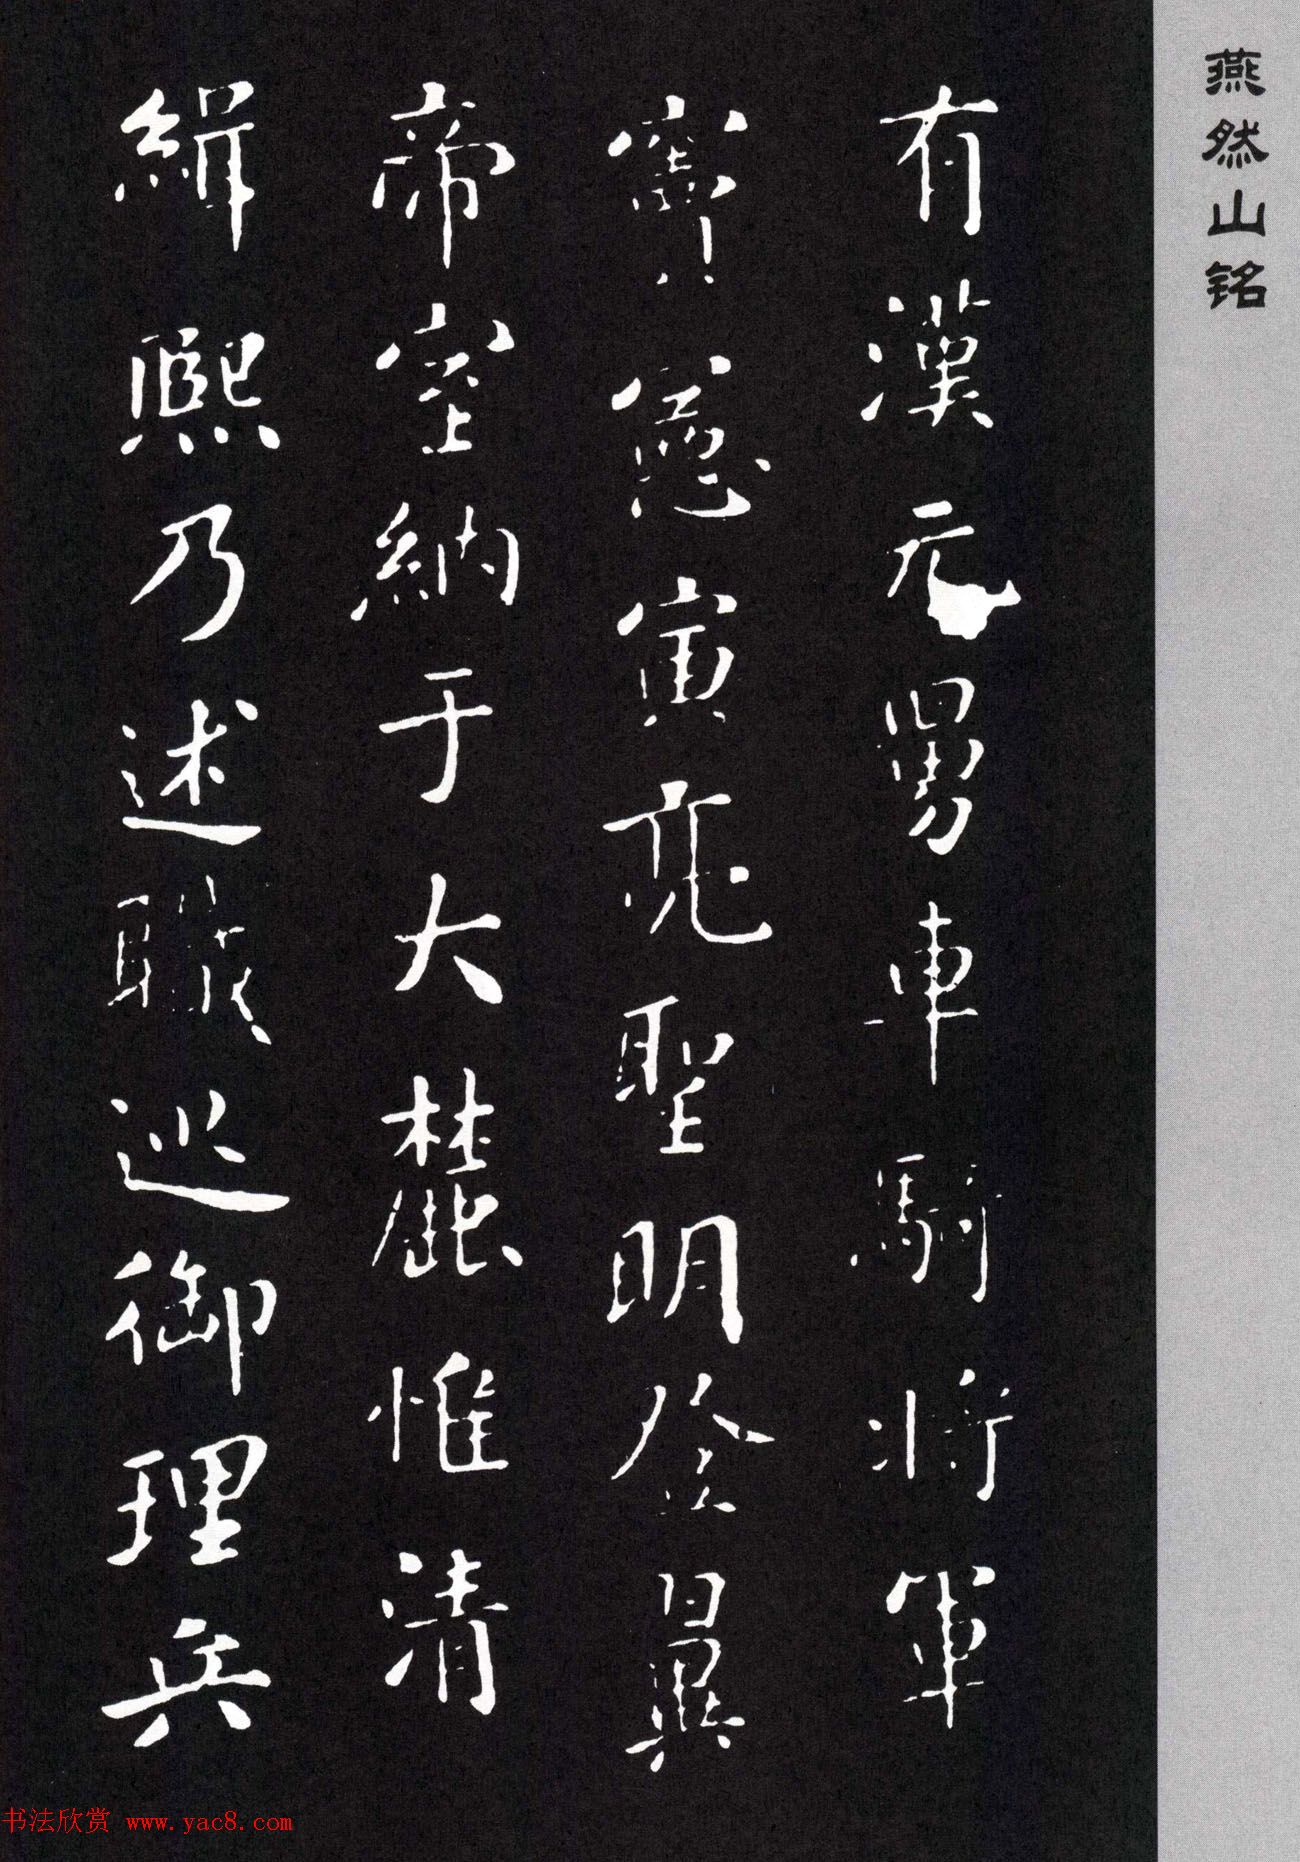 燕然山铭
有漢元舅車騎将軍
竇憲寅亮聖明登翼
帝室納于大麓惟清
緝熙乃述職巡御理兵
书法欣赏 www.yac8.com